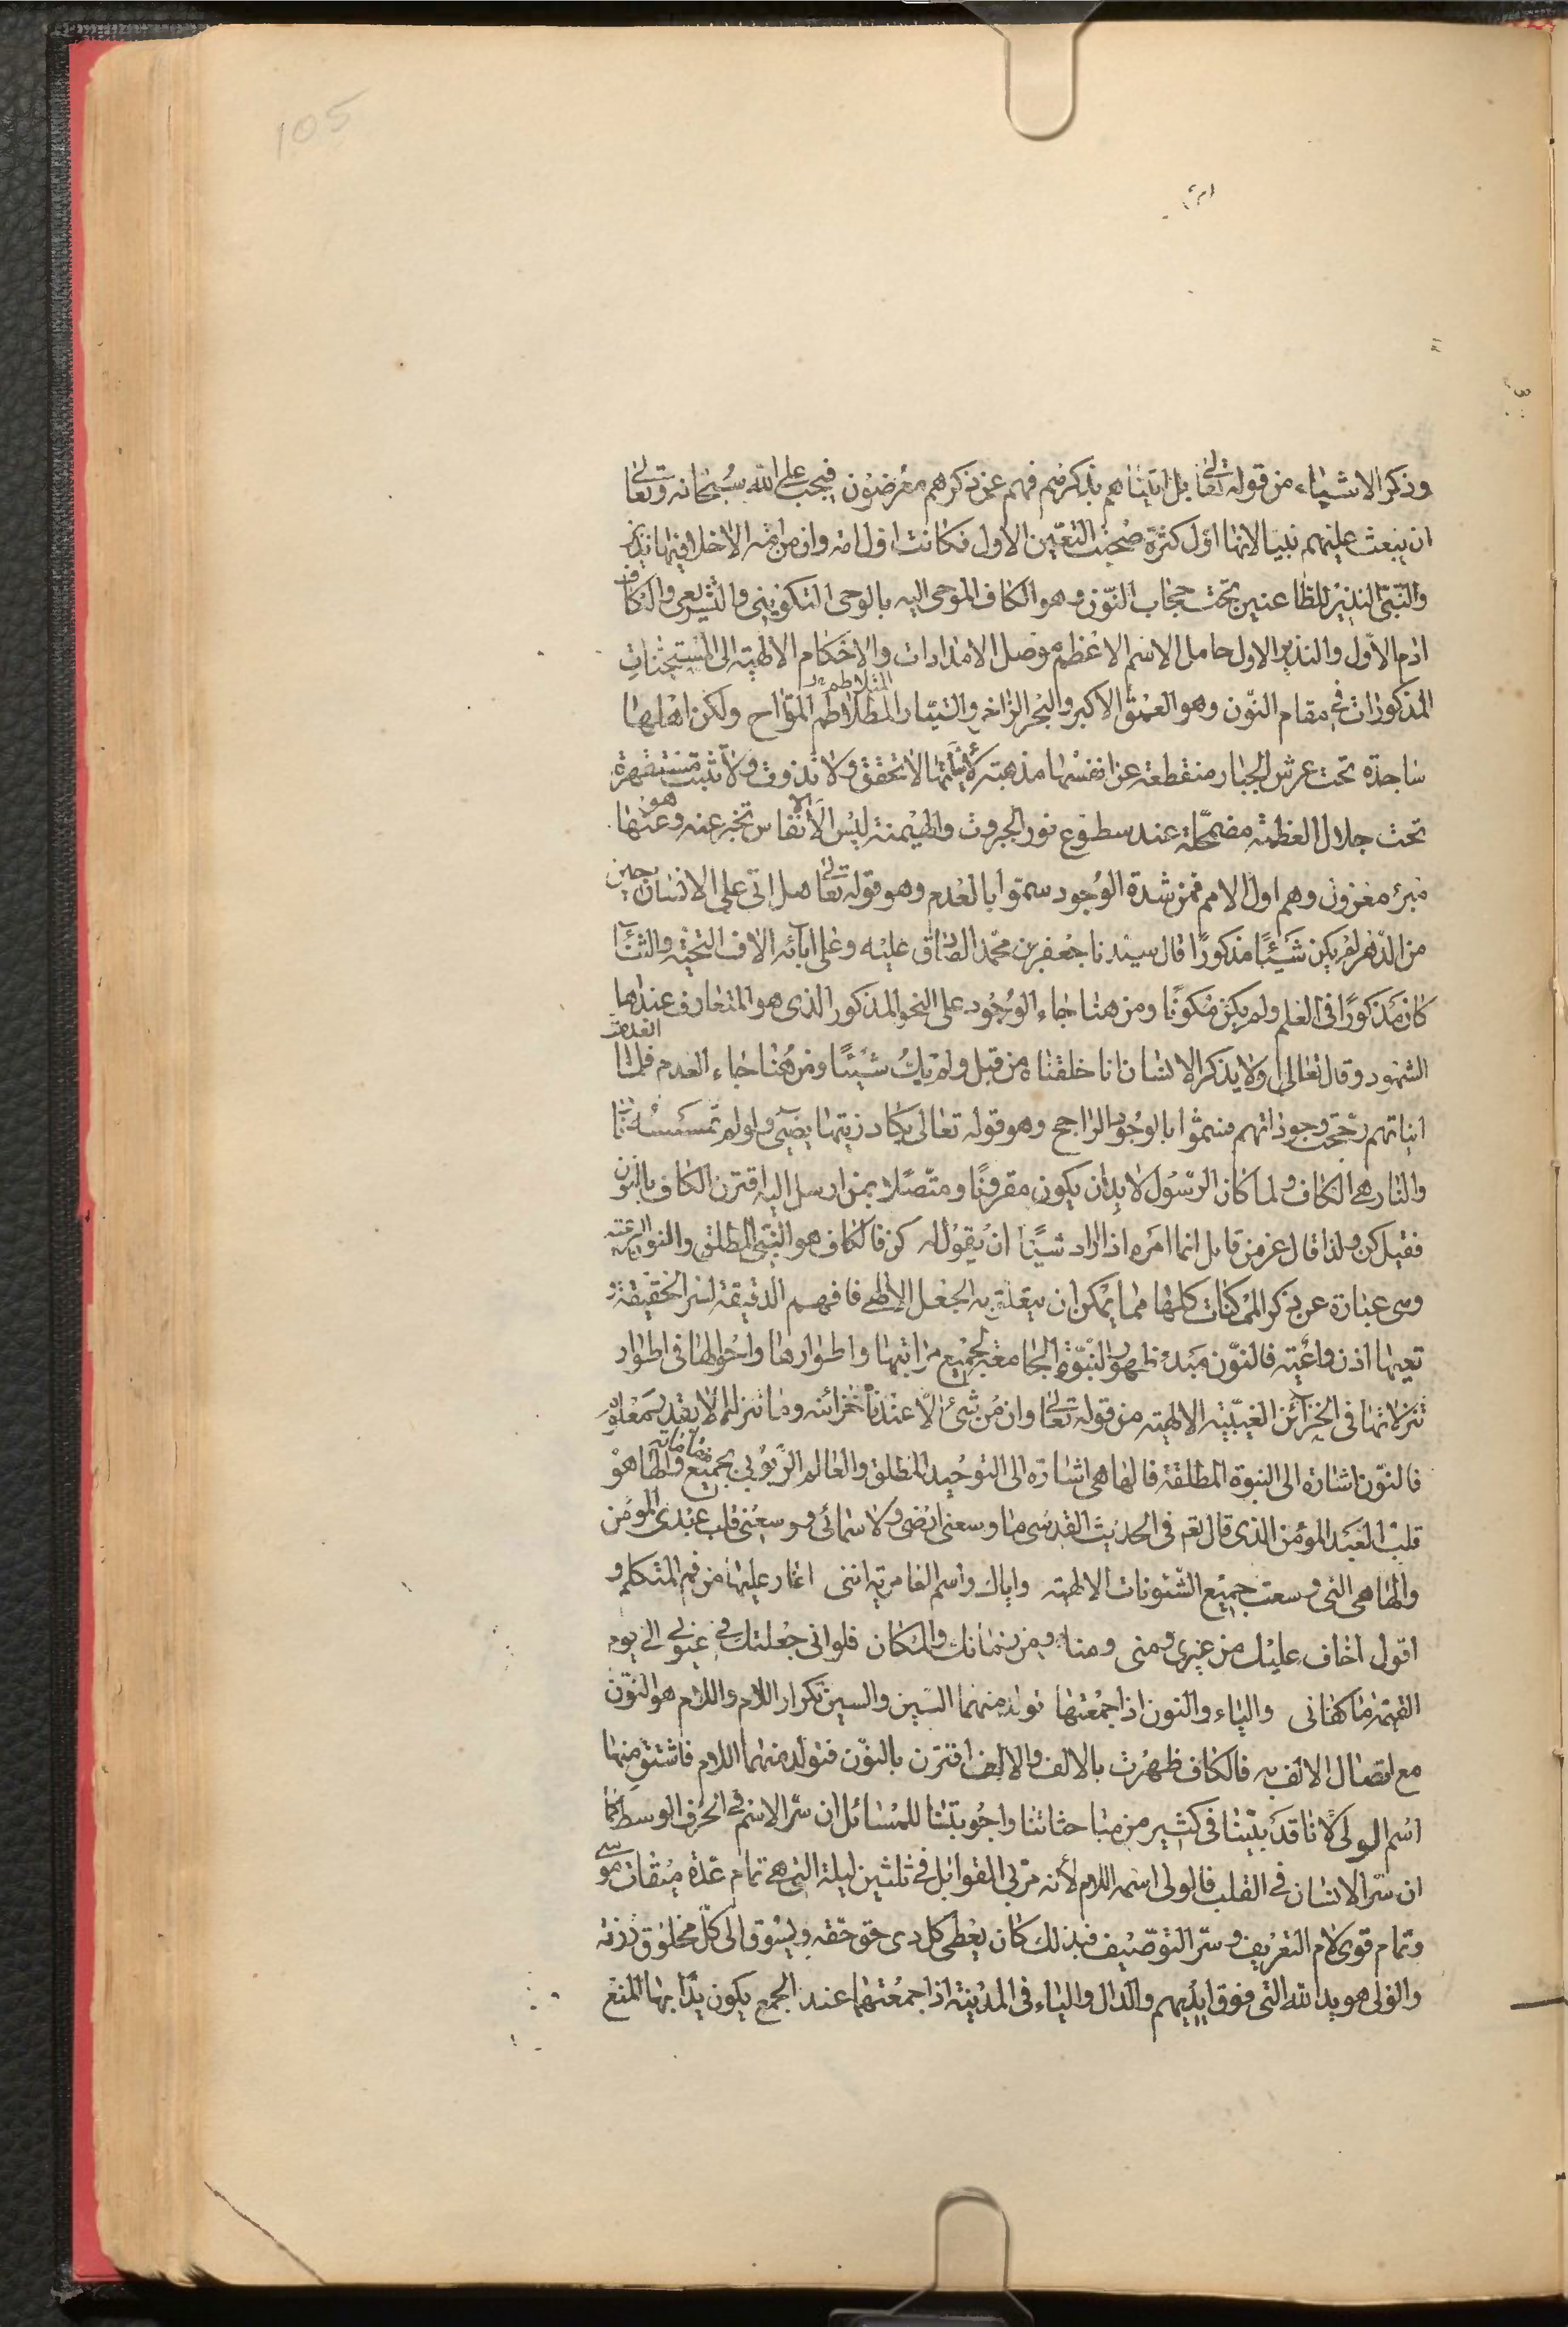 105
وذكر الاشياء من قوله تعالى بل اتيناهم بذكرهم فهم عن ذكرهم معرضون فيجب على الله سبحانه وتعالى
ان يبعث عليهم نبيا لانها اول كثرة صحبت التعين الاول فكانت اول امة وان من امة الا خلا فيها نذير
والنبي النذير للظاعنين تحت حجاب النون وهو الكاف الموحى اليه بالوحى التكوينى والتشريعى والكاف
ادم الاول والنذير الاول حامل الاسم الاعظم موصل الامدادات والاحكام الالهية الى المستجنات
المذكورات في مقام النون وهو العمق الاكبر والبحر الزاخر والتيار المطلاطم المتلاطم المواج ولكن اهلها
ساجدة تحت عرش الجبار منقطعة عن انفسها مذهبة لأنيتها لا تحقق ولا تذوت ولا تثبت مستقهرة
تحت جلال العظمة مضمحلة عند سطوع نور الجبروت والهيمنة ليس الا انفاس تخبر عنه وعنها هو
مبرء معزون وهم اول الامم فمن شدة الوجود سموا بالعدم وهو قوله تعالى هل اتى على الانسان حين
من الدهر لم يكن شيئا مذكورا قال سيدنا جعفر بن محمد الصادق عليه وعلى ابائه الاف التحية والثناء
كان مذكورا فى العلم ولم يكن مكونا ومن هنا جاء الوجود على النحو المذكور الذى هو المتعارف عند اهل
الشهود وقال تعالى ولا يذكر الانسان انا خلقناه من قبل ولم يك شيئا ومن هنا جاء العدم فلما
انياتهم رجحت وجوداتهم فسموا بالوجود الراجح وهو قوله تعالى يكاد زيتها يضيئ ولو لم تمسسه نار
والنار هى الكاف ولما كان الرسول لا بد ان يكون مقرونا ومتصلا بمن ارسل اليه اقترن الكاف بالنون
فقيل كن ولذا قال عز من قايل انما امره اذا اراد شيئا ان يقول له كن فالكاف هو النبي المطلق والنون الرعية
وهى عبارة عن ذكر الممكنات كلها مما يمكن ان يتعلق به الجعل الالهى فافهم الدقيقة لسر الحقيقة
تعيها اذن واعية فالنون مبدء ظهور النبوة الجامعة لجميع مراتبها واطوارها واحوالها فى اطوار
تنزلاتها فى الخزائن الغيبية الالهية من قوله تعالى وان من شئ الا عندنا خزائنه وما ننزله الا بقدر معلوم
فالنون اشارة الى النبوة المطلقة فالهاء هى اشارة الى التوحيد المطلق والعالم الربوبى بجميع مقاماته والهاء هو
قلب العبد المؤمن الذى قال تعم فى الحديث القدسى ما وسعنى ارضى ولا سمائى ووسعنى قلب عبدى المؤمن
والهاء هى التى وسعت جميع الشئونات الالهية واياك واسم العامرية اننى اغار عليها من فم المتكلم و
اقول اخاف عليك من غيرى ومنى ومنك ومن زمانك والمكان فلو انى جعلتك في عيونى الى يوم
القيمة ما كفانى والياء والنون اذا جمعتها تولد منهما السين والسين تكرار اللام واللام هو النون
مع اتصال الالف به فالكاف ظهرت بالالف والالف اقترن بالنون فتولد منهما اللام فاشتق منها
اسم الولى لانا قد بينا فى كثير من مباحثاتنا واجوبتنا للمسائل ان سر الاسم في الحرف الوسط كما
ان سر الانسان في القلب فالولى اسمه اللام لأنه مربى القوابل في ثلثين ليلة التى هى تمام عدة ميقات موسى
وتمام قوى لام التعريف وسر التوصيف فبذلك كان يعطى كل ذى حق حقه ويسوق الى كل مخلوق رزقه
والولى هو يد الله التى فوق ايديهم والدال والياء فى المدينة اذا جمعتهما عند الجمع يكون يدا بها المنع